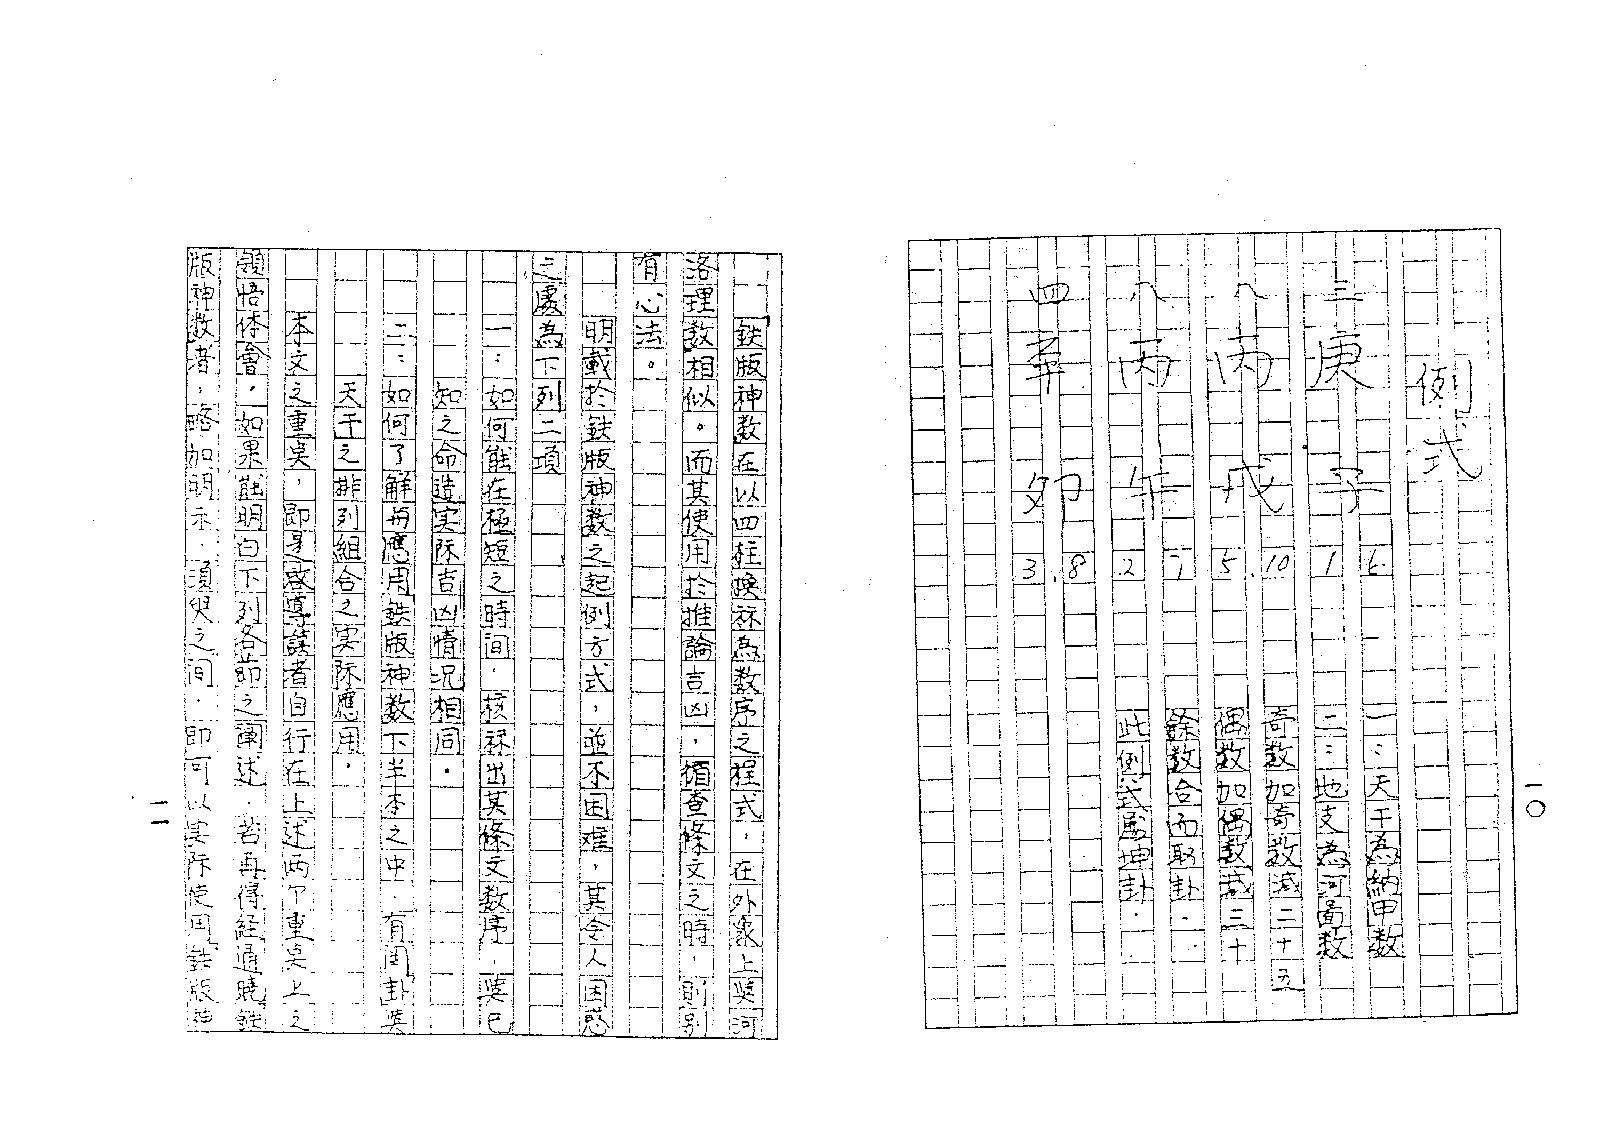 例式
三庚子 6 1
八丙戌 10 5
八丙午 7 2
四辛卯 8 3
一：天干為納甲数
二：地支為河啚数
奇数加奇数减二十五
偶数加偶数减三十
餘数合而取卦．
此例式為坤卦．
一〇
鉄版神数在以四柱換祘為数序之程式，在外象上與河
洛理数相似。而其使用於推論吉凶，循查條文之時，則别
有心法。
明載於鉄版神数之起例方式，並不困难，其令人困惑
之處為下列二項
一：如何能在極短之時间．核祘出其條文数序．與已
知之命造实际吉凶情况相同．
二：如何了解再應用鉄版神数下半本之中．有囯卦與
天干之排列組合之实际應用．
本文之重桌，即是啟導読者自行在上述两个重桌上之
領悟体會．如果能明白下列各節之阐述．若再得經通曉鉄
版神数者，略加明示．須臾之间．即可以实际使用鉄版神
一一